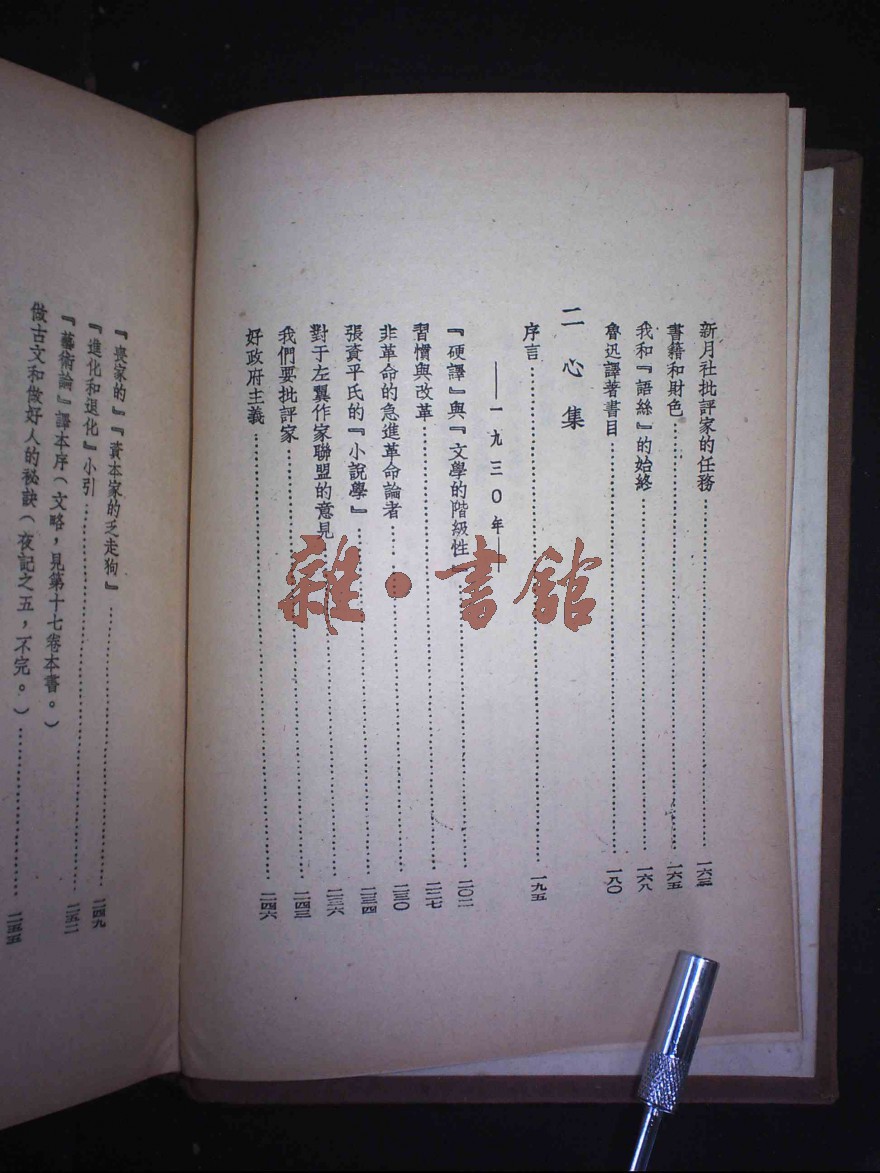 新月社批評家的任務……一六三
書籍和財色……一六五
我和『語絲』的始終……一六八
魯迅譯著書目……一八〇
二心集
序言……一九五
——一九三〇年——
『硬譯』與『文學的階級性』……二〇二
習慣與改革……二二七
非革命的急進革命論者……二三〇
張資平氏的『小說學』……二三四
對于左翼作家聯盟的意見……二三六
我們要批評家……二四三
好政府主義……二四六
『喪家的』『資本家的乏走狗』……二四九
『進化和退化』小引……二五二
『藝術論』譯本序(文略,見第十七卷本書。)
做古文和做好人的秘訣(夜記之五,不完。)……二五五
雜·書館